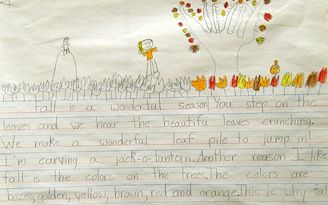 Fall is a wonderful season! You step on the
leaves and we hear the beautiful leaves crunching.
We make a wonderful leaf pile to jump in!
I'm carving a jack-o-lantern. Another reason I like
fall is the colors on the trees. The colors are
golden, yellow, brown, red and orange. This is why fall